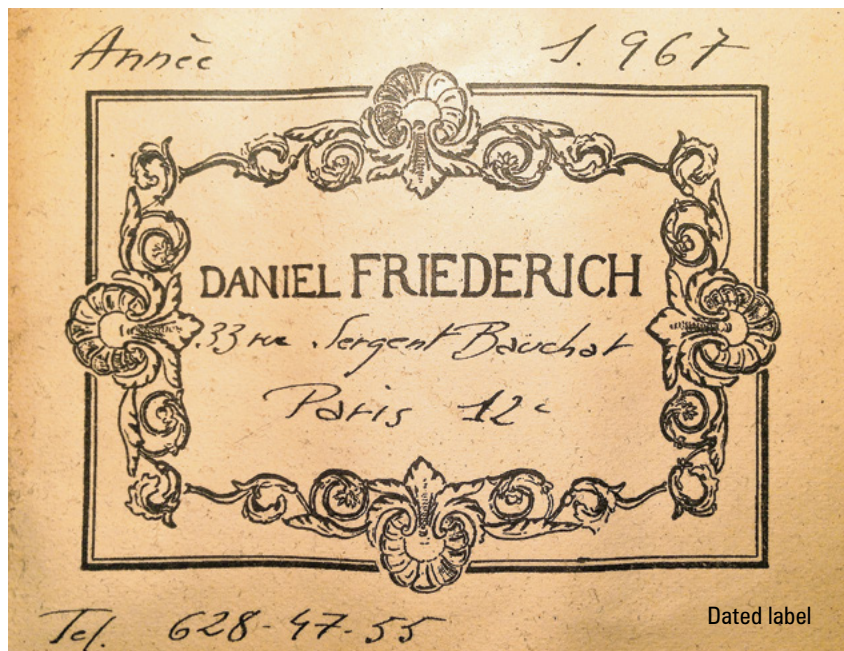 Année 1.967
DANIEL FRIEDERICH
33 rue Sergent Bauchat
Paris 12e
Tel. 628-47-55
Dated label